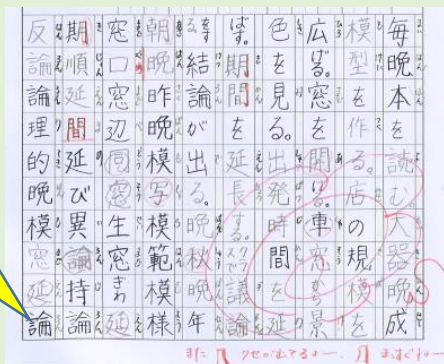 毎晩本を読む。大器晩成
模型を作る。店の規模を
広げる。窓を開ける。車窓から景
色を見る。出発時間を延
ばす。期間を延長する。議論
をする。結論が出る。晩秋晩年
朝晩昨晩模写模範模様
窓口窓辺同窓生窓きわ延
期順延間延び異論持論
反論論理的晩模窓延論
また クセがでてるよー。 まっすぐねー